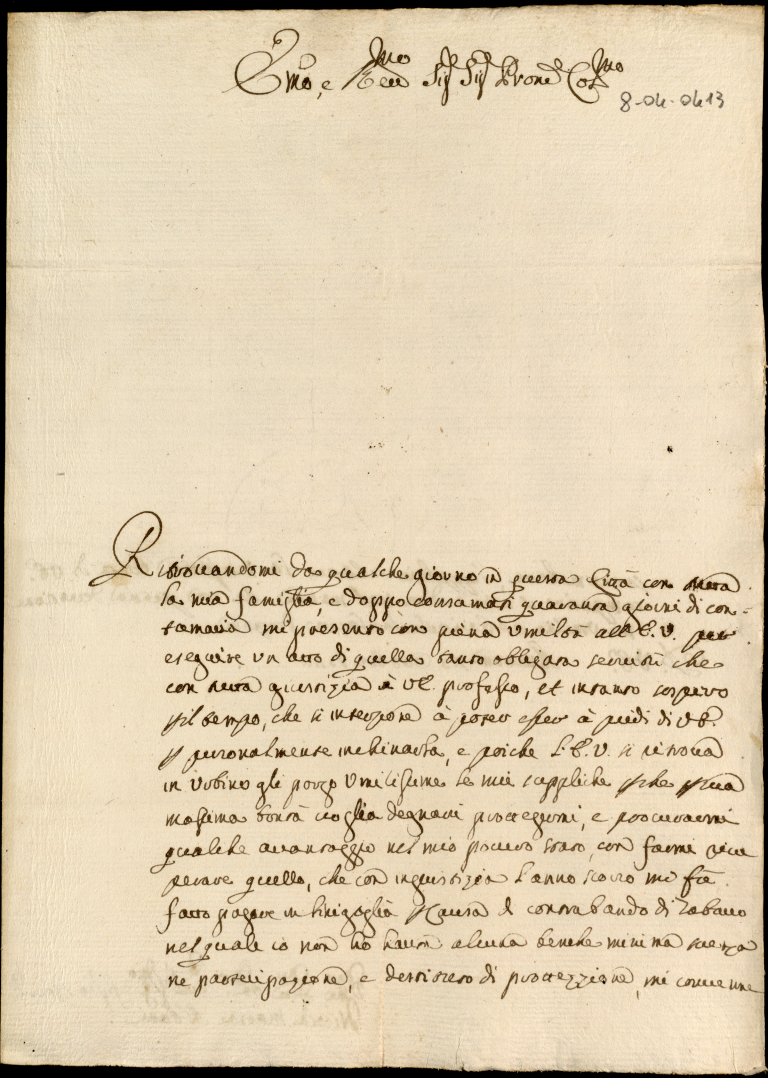 Emo, e Reumo Sigr Sigr Pron Colmo
8-04-0413
Ritrouandomi da qualche giorno in questa Città con tutta
la mia famiglia, e doppo consumati quaranta giorni di con-
tumacia mi presento con piena umiltà all'E.V. per
eseguire un atto di quella tanto obligata seruitù che
con tutta giustizia à VE. professo, et intanto sospiro
il tempo, che si interpone à poter esser à piedi di VE.
personalmente inchinarla, e poiche l'E.V. si ritroua
in Urbino gli porgo umilissime le mie suppliche che sua
massima bontà uoglia degnarsi proteggermi, e procurarmi
qualche auantaggio nel mio pouero stato, con farmi ricu
perare quello, che con ingiustizia l'anno scorso mi fu
fatto pagare in Sinigaglia causa di contrabando di Tabacco
nel quale io non hò hauuta alcuna benche minima scienza
ne partecipazione, e destituto di protezzione, mi conuenne